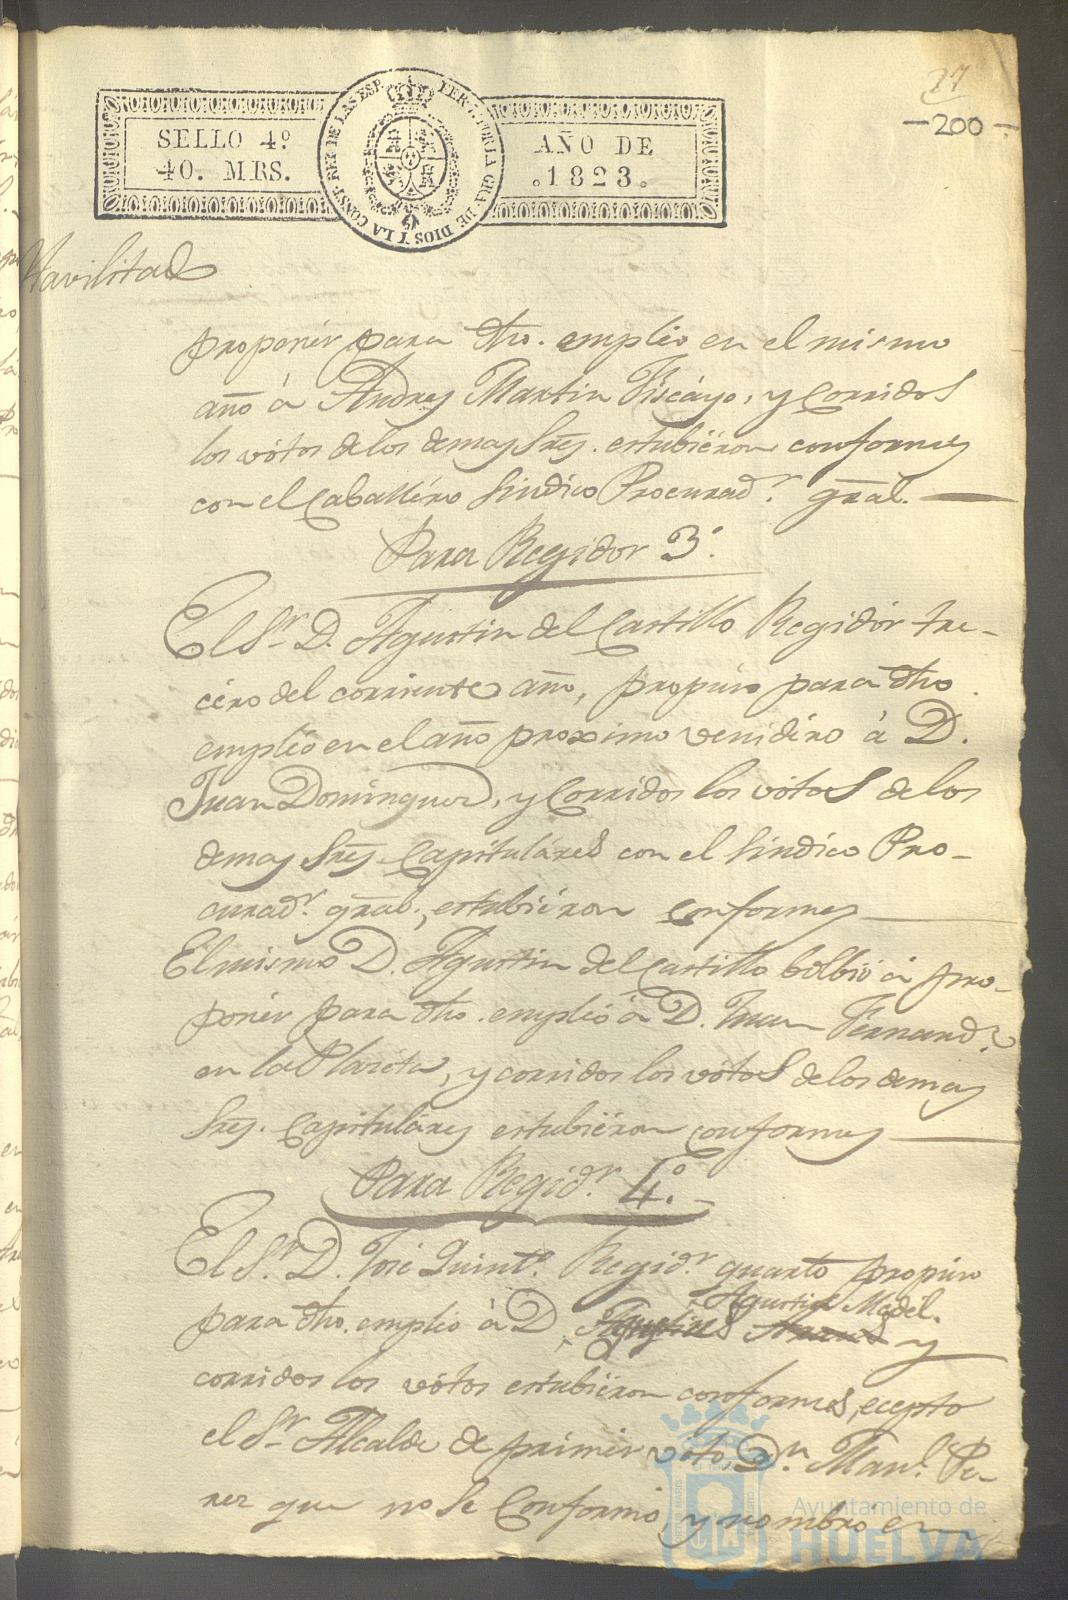 27
200
SELLO 4º
40. MRS.
FER. 7. POR LA GRA. DE DIOS Y LA CONST. REY DE LAS ESP.
AÑO DE
1823.
Havilitad
proponér para dho. empléo en el mismo
año á Andres Martin Viscáyo, y Corridos
los vótos de los demas Sres. estubiéron conformes
con el Caballéro Sindico Procurad.r gral.
Para Regidor 3.º
El S.r D. Agustin del Castillo Regidór ter-
céro del corriente año, propuso para dho
empléo en el año proximo venidéro á D.
Juan Dominguez, y Corridos los vótos de los
demas Sres. Capituláres con el Sindico Pro-
curad.r gral., estubiéron conformes
El mismo D. Agustin del Castillo bolbió á pro-
ponér para dho. empléo á D. Juan Fernand.z
en la Placéta, y corridos los vótos de los demas
Sres. Capituláres estubiéron conformes
Para Regid.r 4.º
El S.r D. José Quint.o Regid.r quarto propuso
Agustin Medel.
para dho. empléo á D. y
corridos los vótos estubiéron conformes, ecepto
el S.r Alcalde de primér voto, D.n Man.l Pe-
rez que no se Conformó, y nombró en
Ayuntamiento de
HUELVA